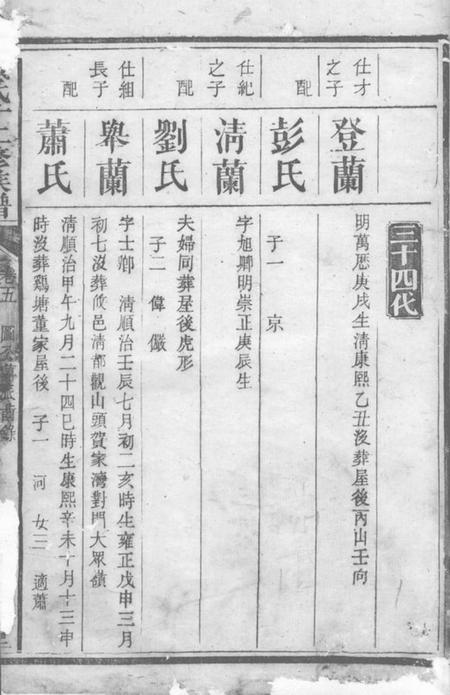 三十四代
仕才之子
登蘭
明萬厯庚戌生清康熙乙丑沒葬屋後丙山壬向
配
彭氏
子一 京
仕紀之子
淸蘭
字旭卿明崇正庚辰生
配
劉氏
夫婦同葬屋後虎形
子二 偉 儼
仕組長子
舉蘭
字士鄕 清順治壬辰七月初二亥時生雍正戊申三月
初七沒葬攸邑清都觀山頭賀家灣對門大眾嶺
配
蕭氏
清順治甲午九月二十四巳時生康熙辛未十月十三申
時沒葬鷄塘董家屋後 子一 河 女三 適蕭
修族譜
卷五